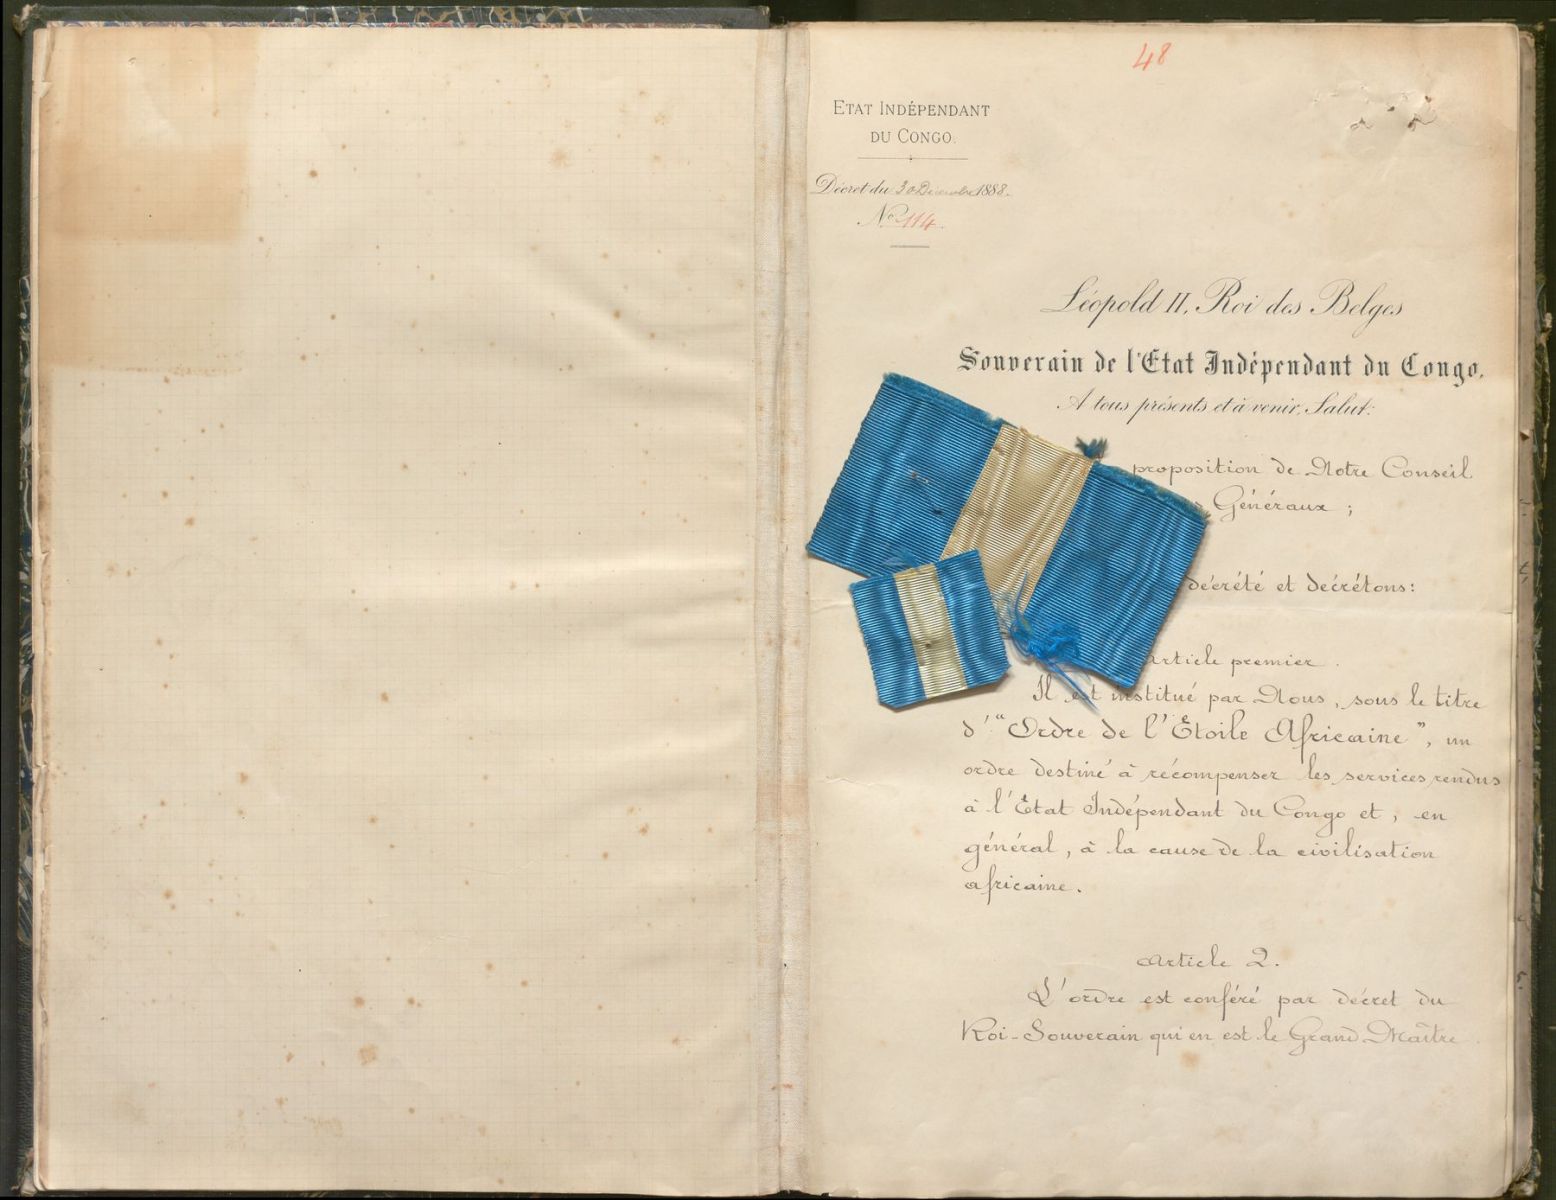 48
ETAT INDÉPENDANT
DU CONGO.
Décret du 30 Décembre 1888.
No 114.
Léopold II, Roi des Belges
Souverain de l'Etat Indépendant du Congo,
A tous présents et à venir, Salut:
proposition de Notre Conseil
Généraux ;
décrété et décrétons:
article premier.
Il est institué par Nous, sous le titre
d' "Ordre de l'Etoile Africaine", un
ordre destiné à récompenser les services rendus
à l'Etat Indépendant du Congo et, en
général, à la cause de la civilisation
africaine.
article 2.
L'ordre est conféré par décret du
Roi-Souverain qui en est le Grand Maître.